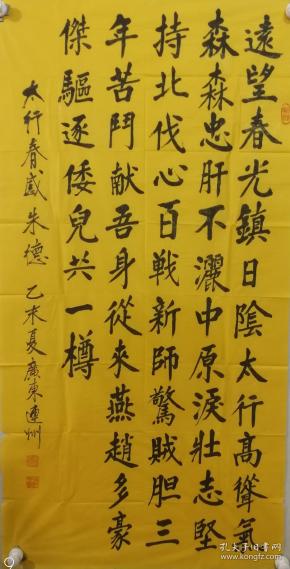 遠望春光鎮日陰太行高聳氣
森森忠肝不灑中原淚壯志堅
持北伐心百戰新師驚賊胆三
年苦鬥献吾身從來燕趙多豪
傑驅逐倭兒共一樽
太行春感朱德 乙未夏廣東連州
孔夫子旧书网